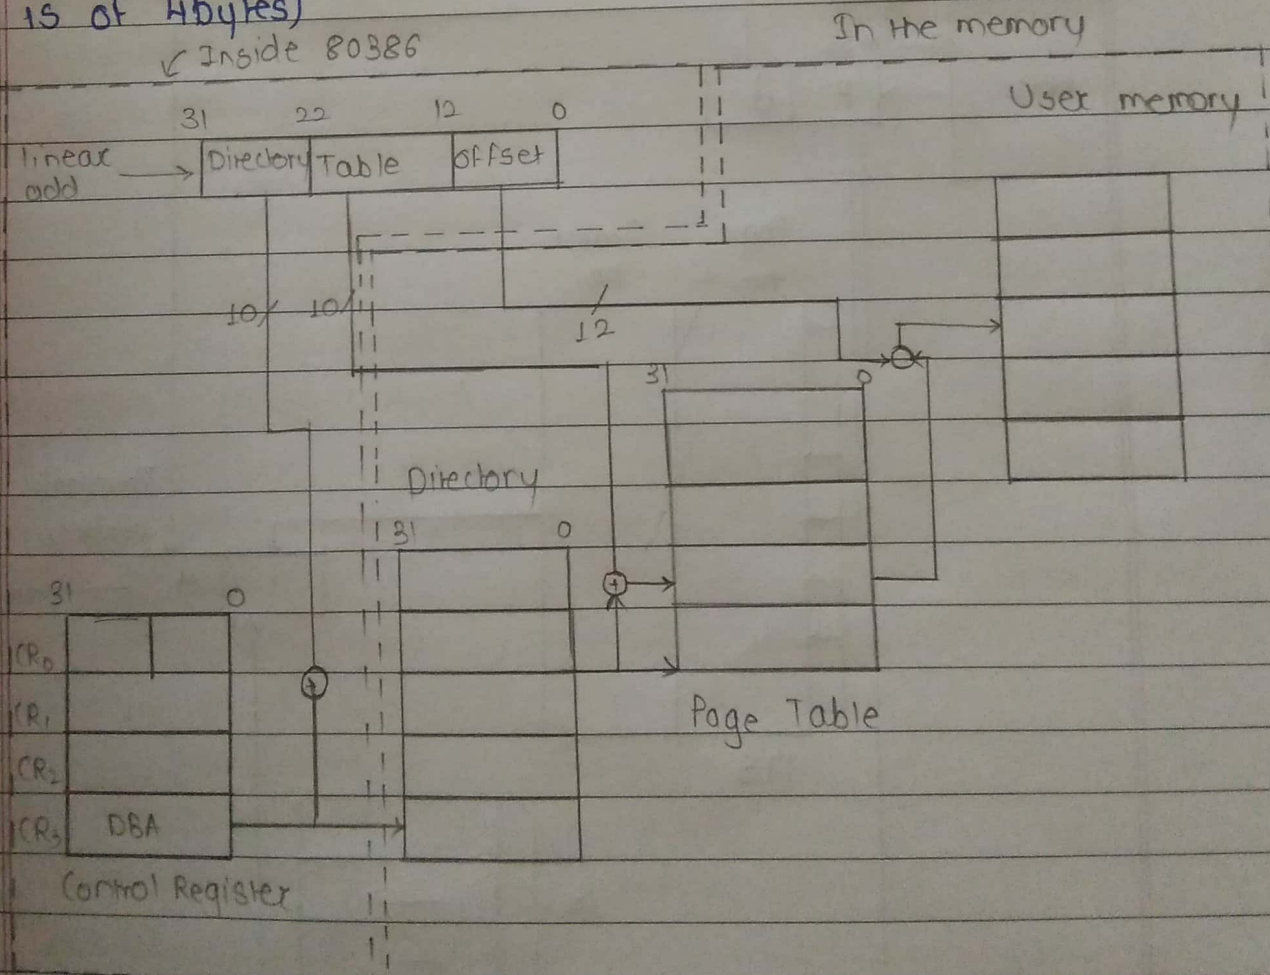 is of 4bytes)
Inside 80386
In the memory
User memory
31 22 12 0
linear add
Directory Table offset
10 10
12
31 0
Directory
31 0
31 0
CR0
CR1
Page Table
CR2
CR3 DBA
Control Register